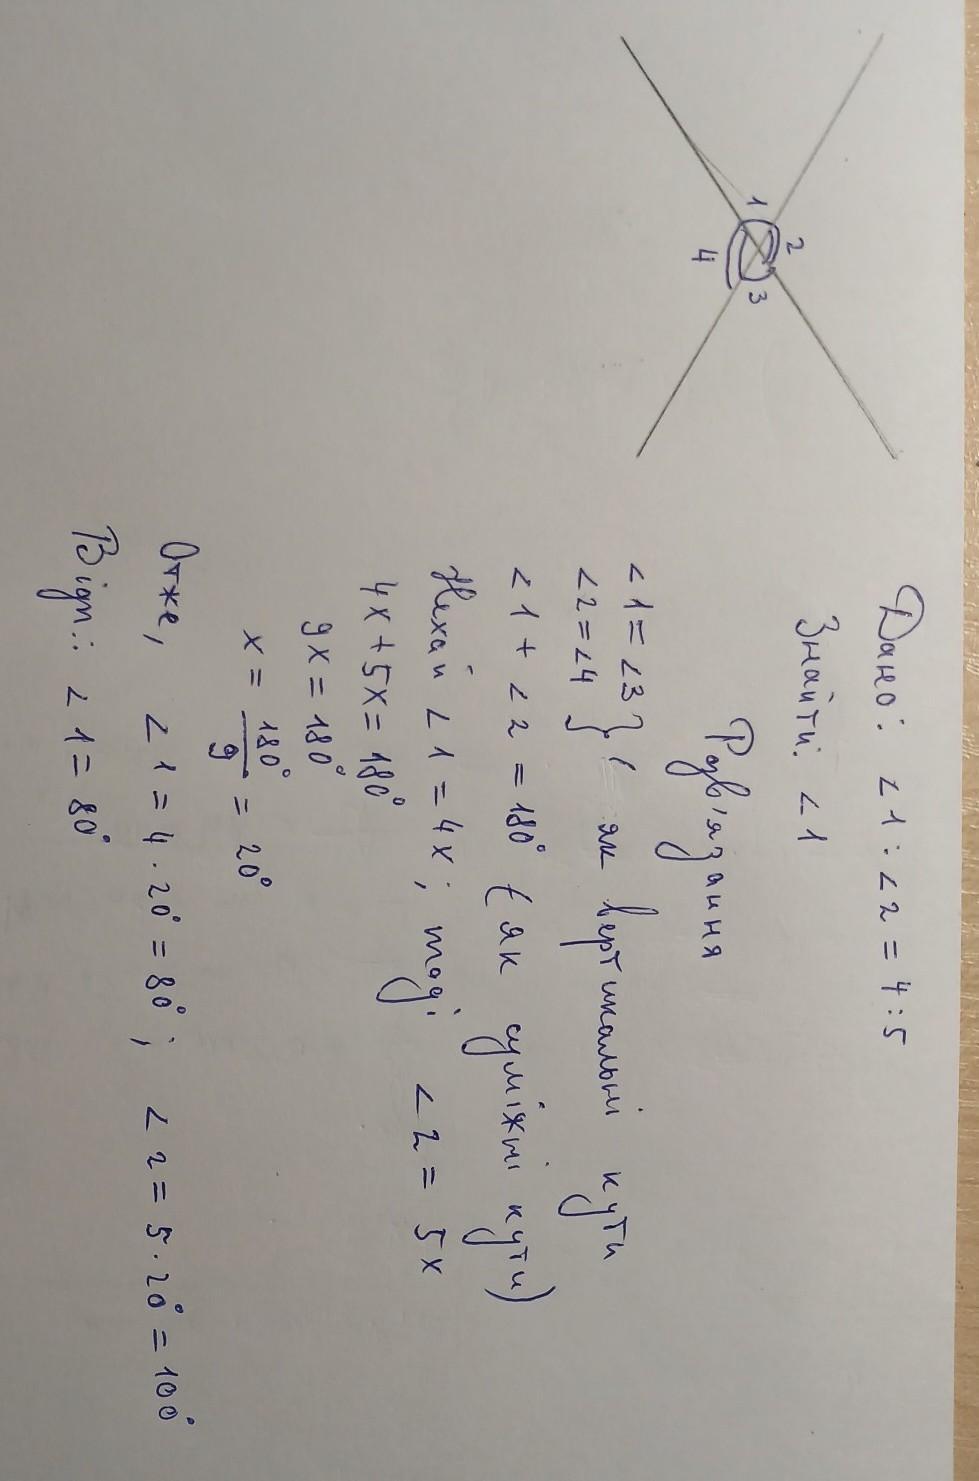 1
2
3
4
Дано: ∠1 : ∠2 = 4 : 5
Знайти: ∠1
Розв'язання
∠1 = ∠3 } ( як вертикальні кути
∠2 = ∠4
∠1 + ∠2 = 180° (як суміжні кути)
Нехай ∠1 = 4x; тоді ∠2 = 5x
4x + 5x = 180°
9x = 180°
x = 180°/9 = 20°
Отже, ∠1 = 4 · 20° = 80°; ∠2 = 5 · 20° = 100°
Відп.: ∠1 = 80°